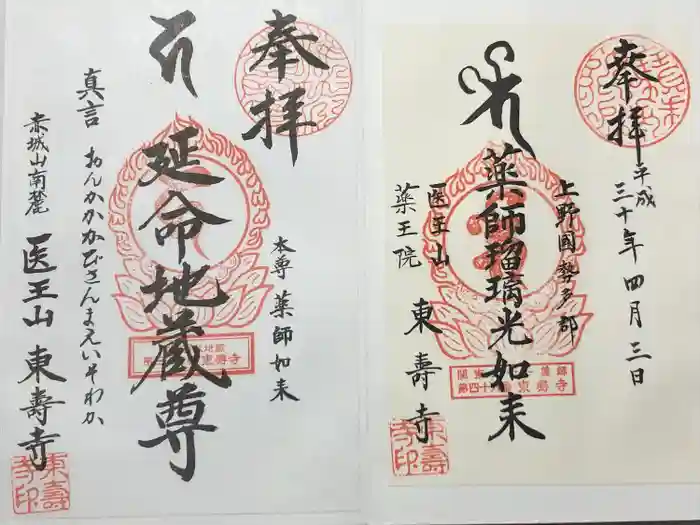 奉拝
平成三十年四月三日
上野國勢多郡
薬師瑠璃光如来
医王山
薬王院
東壽寺
東壽寺印
奉拝
本尊 薬師如来
延命地蔵尊
真言 おんかかかびさんまえいそわか
赤城山南麓
医王山 東壽寺
東壽寺印